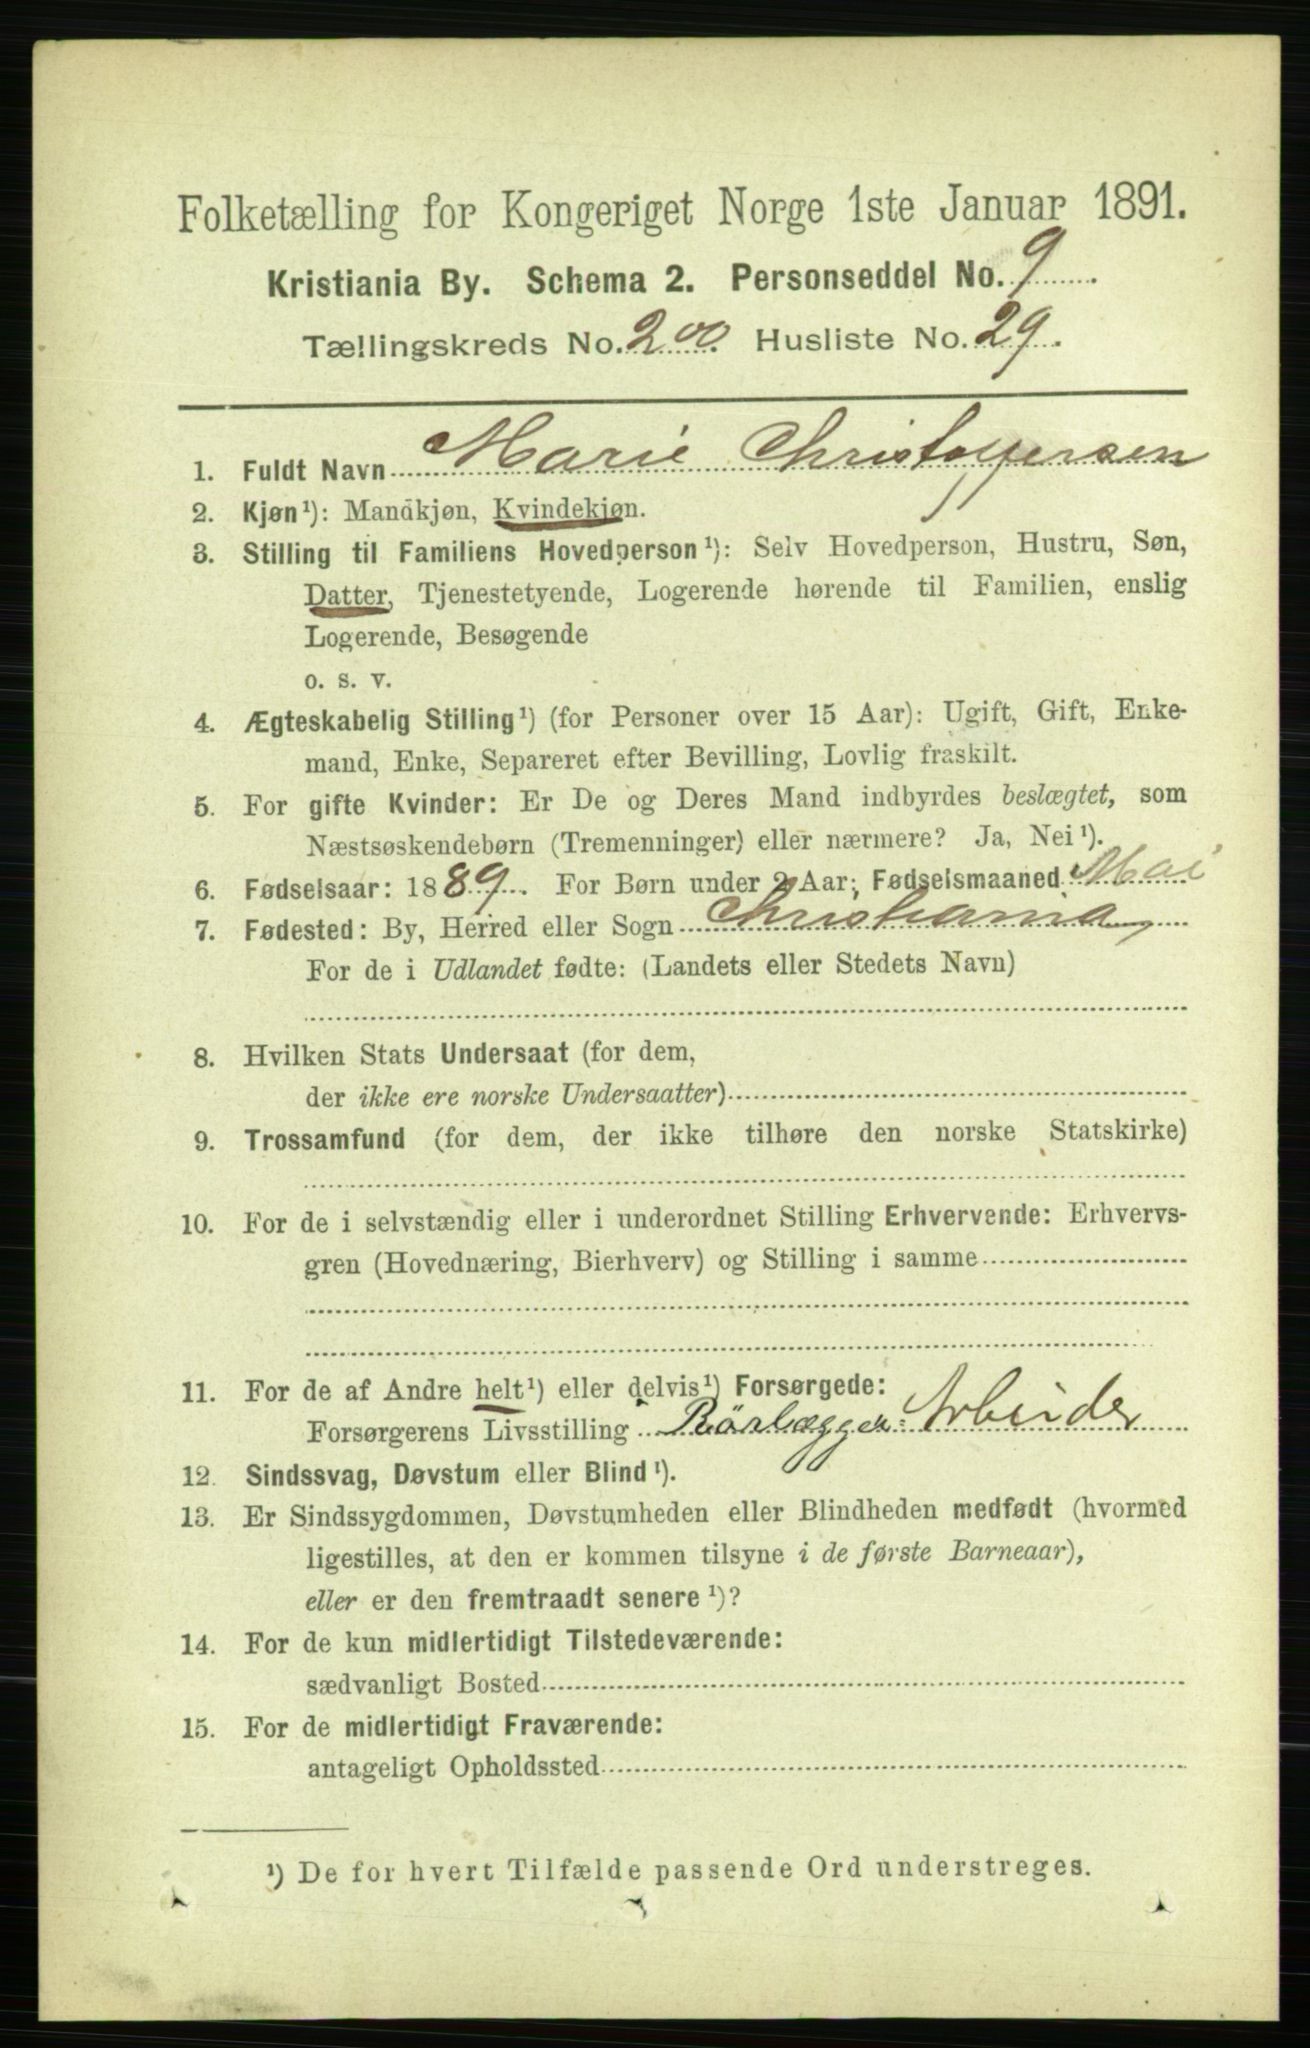 Folketælling for Kongeriget Norge 1ste Januar 1891.
Kristiania By. Schema 2. Personseddel No. 9
Tællingskreds No. 200. Husliste No. 29.
1. Fuldt Navn Marie Christoffersen
2. Kjøn¹): Mandkjøn, Kvindekjøn.
3. Stilling til Familiens Hovedperson¹): Selv Hovedperson, Hustru, Søn,
Datter, Tjenestetyende, Logerende hørende til Familien, enslig
Logerende, Besøgende
o. s. v.
4. Ægteskabelig Stilling¹) (for Personer over 15 Aar): Ugift, Gift, Enke-
mand, Enke, Separeret efter Bevilling, Lovlig fraskilt.
5. For gifte Kvinder: Er De og Deres Mand indbyrdes beslægtet, som
Næstsøskendebørn (Tremenninger) eller nærmere? Ja, Nei¹).
6. Fødselsaar: 1889. For Børn under 2 Aar; Fødselsmaaned Mai
7. Fødested: By, Herred eller Sogn Christiania
For de i Udlandet fødte: (Landets eller Stedets Navn)
8. Hvilken Stats Undersaat (for dem,
der ikke ere norske Undersaatter)
9. Trossamfund (for dem, der ikke tilhøre den norske Statskirke)
10. For de i selvstændig eller i underordnet Stilling Erhvervende: Erhvervs-
gren (Hovednæring, Bierhverv) og Stilling i samme
11. For de af Andre helt¹) eller delvis¹) Forsørgede:
Forsørgerens Livsstilling Rörlægger-Arbeider
12. Sindssvag, Døvstum eller Blind¹).
13. Er Sindssygdommen, Døvstumheden eller Blindheden medfødt (hvormed
ligestilles, at den er kommen tilsyne i de første Barneaar),
eller er den fremtraadt senere¹)?
14. For de kun midlertidigt Tilstedeværende:
sædvanligt Bosted
15. For de midlertidigt Fraværende:
antageligt Opholdssted
¹) De for hvert Tilfælde passende Ord understreges.